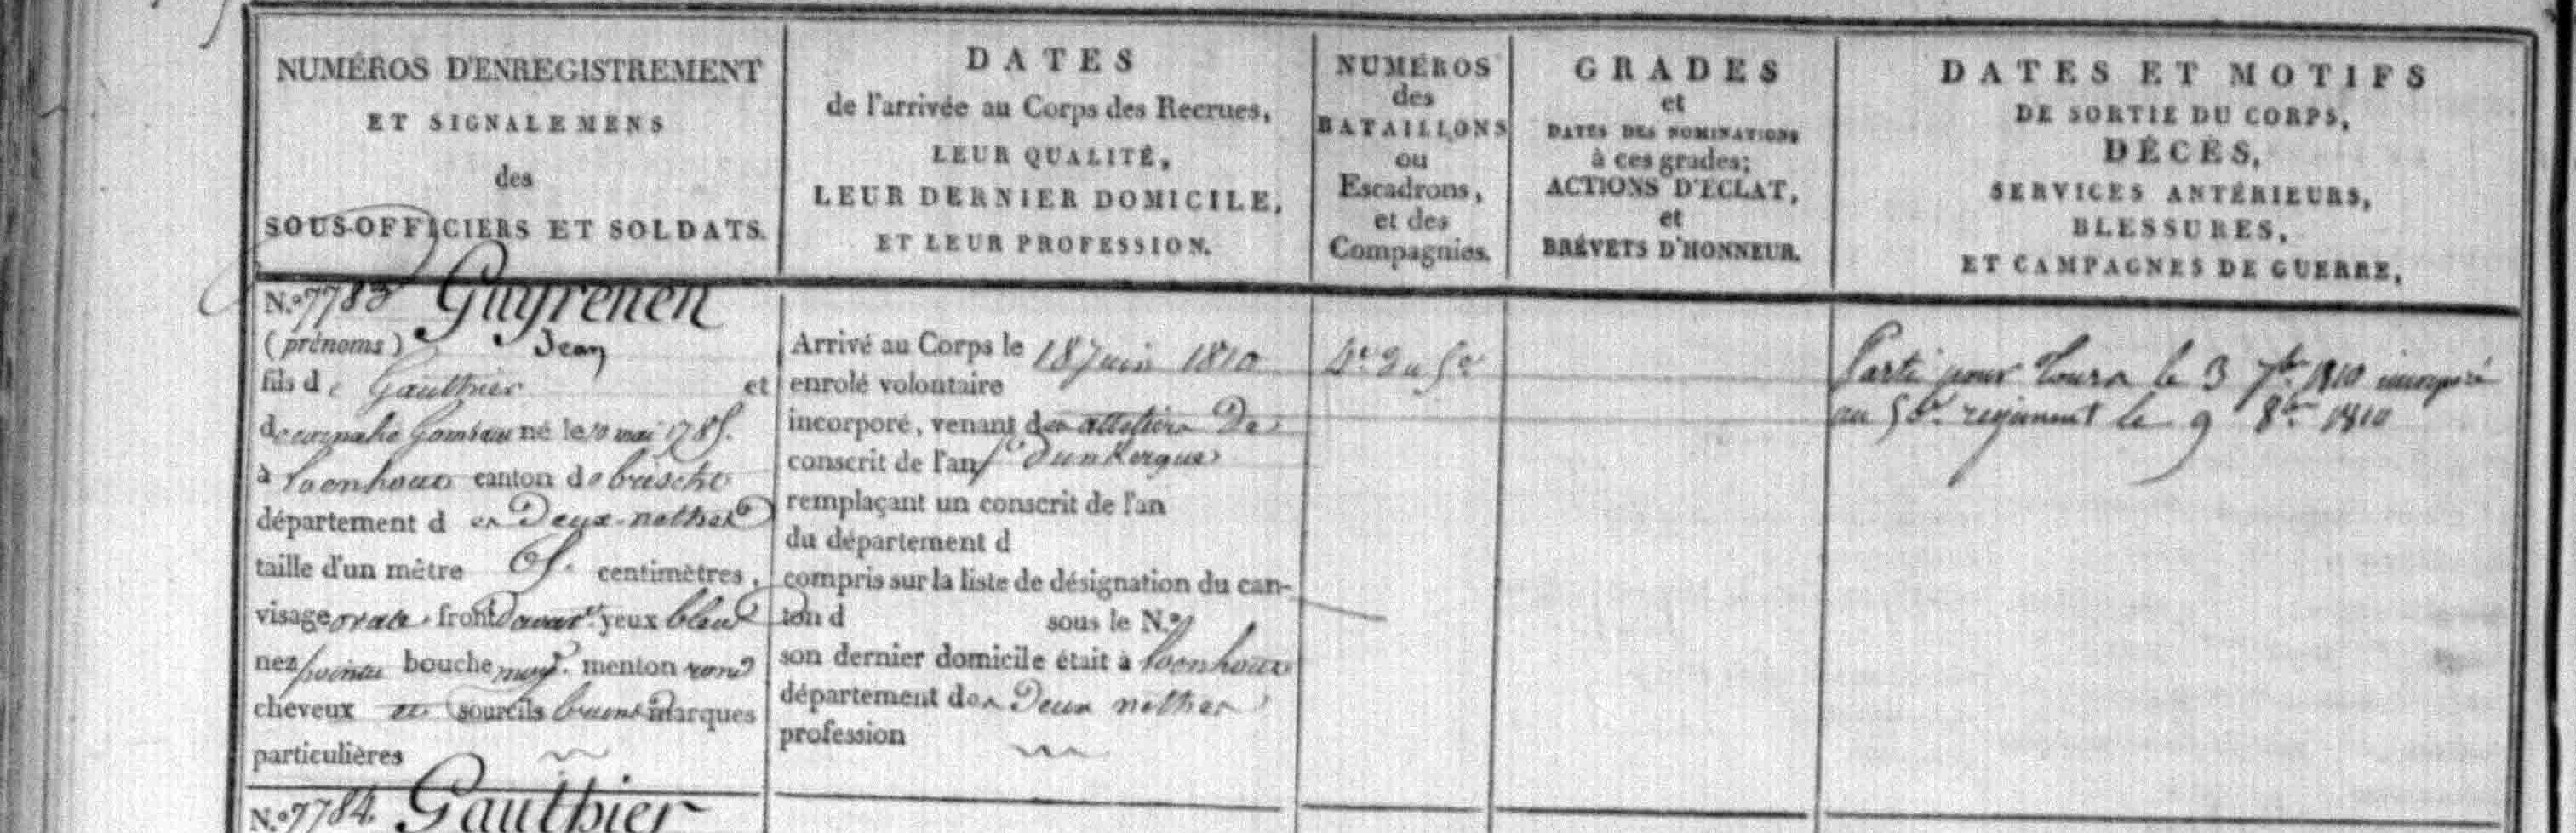 NUMÉROS D'ENREGISTREMENT
ET SIGNALEMENS
des
SOUS-OFFICIERS ET SOLDATS.
DATES
de l'arrivée au Corps des Recrues,
LEUR QUALITÉ,
LEUR DERNIER DOMICILE,
ET LEUR PROFESSION.
NUMÉROS
des
BATAILLONS
ou
Escadrons,
et des
Compagnies.
GRADES
et
DATES DES NOMINATIONS
à ces grades;
ACTIONS D'ÉCLAT,
et
BRÉVETS D'HONNEUR.
DATES ET MOTIFS
DE SORTIE DU CORPS,
DÉCÈS,
SERVICES ANTÉRIEURS,
BLESSURES,
ET CAMPAGNES DE GUERRE,
N.º 7783 Guyrenen
(prénoms) Jean
fils de Gauthier et
de né le 10 mai 1785.
à Loenhout canton de
département des Deux-nethes
taille d'un mètre centimètres,
visage ovale front yeux bleus
nez pointu bouche moy. menton rond
cheveux et sourcils bruns marques
particulières
N.º 7784. Gauthier
Arrivé au Corps le 18 Juin 1810
enrolé volontaire
incorporé, venant des De
conscrit de l'an Dunkerque
remplaçant un conscrit de l'an
du département d
compris sur la liste de désignation du can-
ton d sous le N.º
son dernier domicile était à Loenhout
département des Deux nethes
profession
4e du 5e
Parti pour Tours le 3 7bre 1810 incorporé
au régiment le 9 8bre 1810